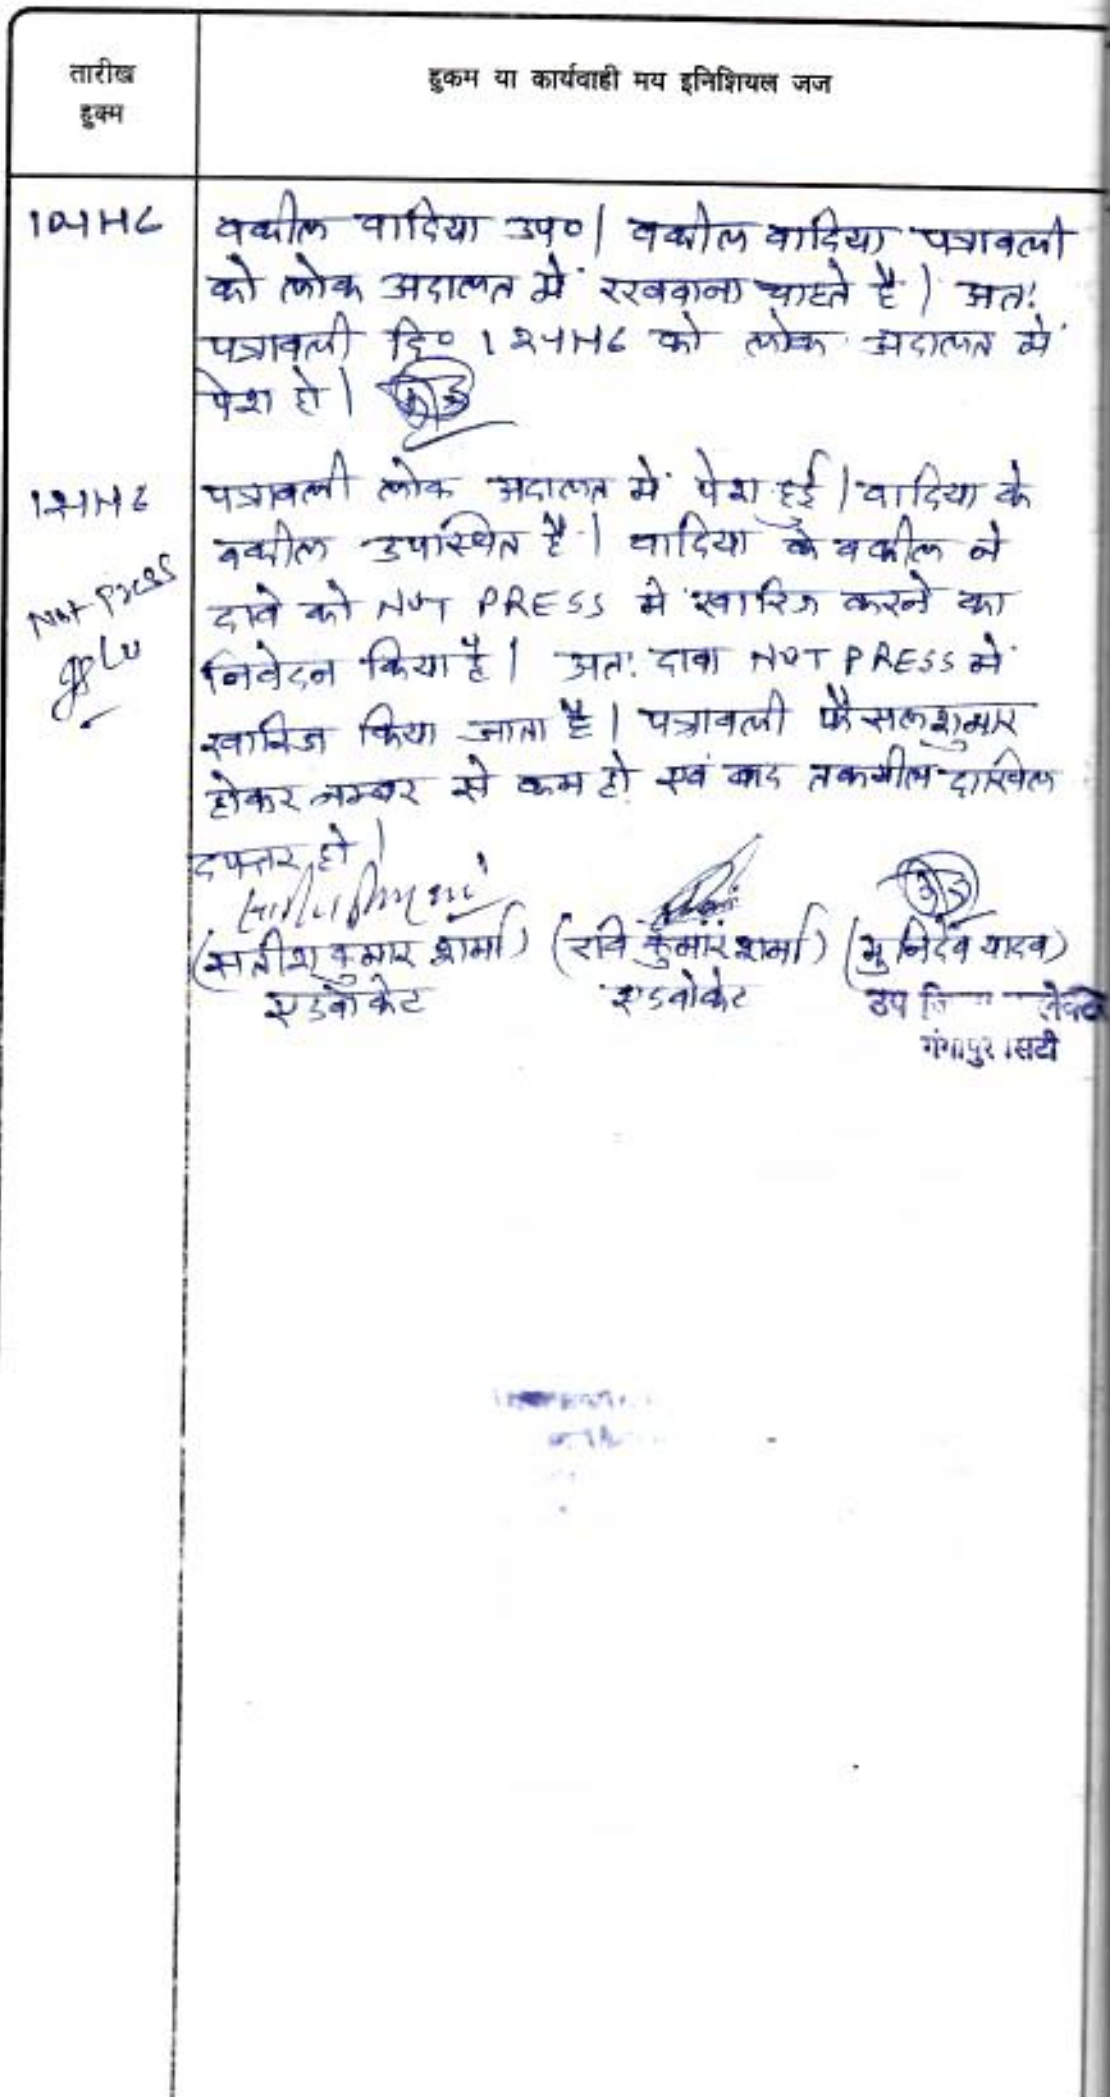 तारीख
हुक्म
हुकम या कार्यवाही मय इनिशियल जज
वकील वादिया उप० | वकील वादिया पत्रावली
को लोक अदालत में रखवाना चाहते है | अत:
पत्रावली दि० को लोक अदालत में
पेश हो |
पत्रावली लोक अदालत में पेश हुई | वादिया के
वकील उपस्थित है | वादिया के वकील ने
Not Press
दावे को NOT PRESS मे खारिज करने का
निवेदन किया है | अत: दावा NOT PRESS मे
खारिज किया जाता है | पत्रावली फैसलशुमार
होकर नम्बर से कम हो एवं बाद तकमील दाखिल
दफ्तर हो |
(सतीश कुमार शर्मा) (रवि कुमार शर्मा) (मुनिदेव यादव)
एडवोकेट एडवोकेट उप
गंगापुर सिटी